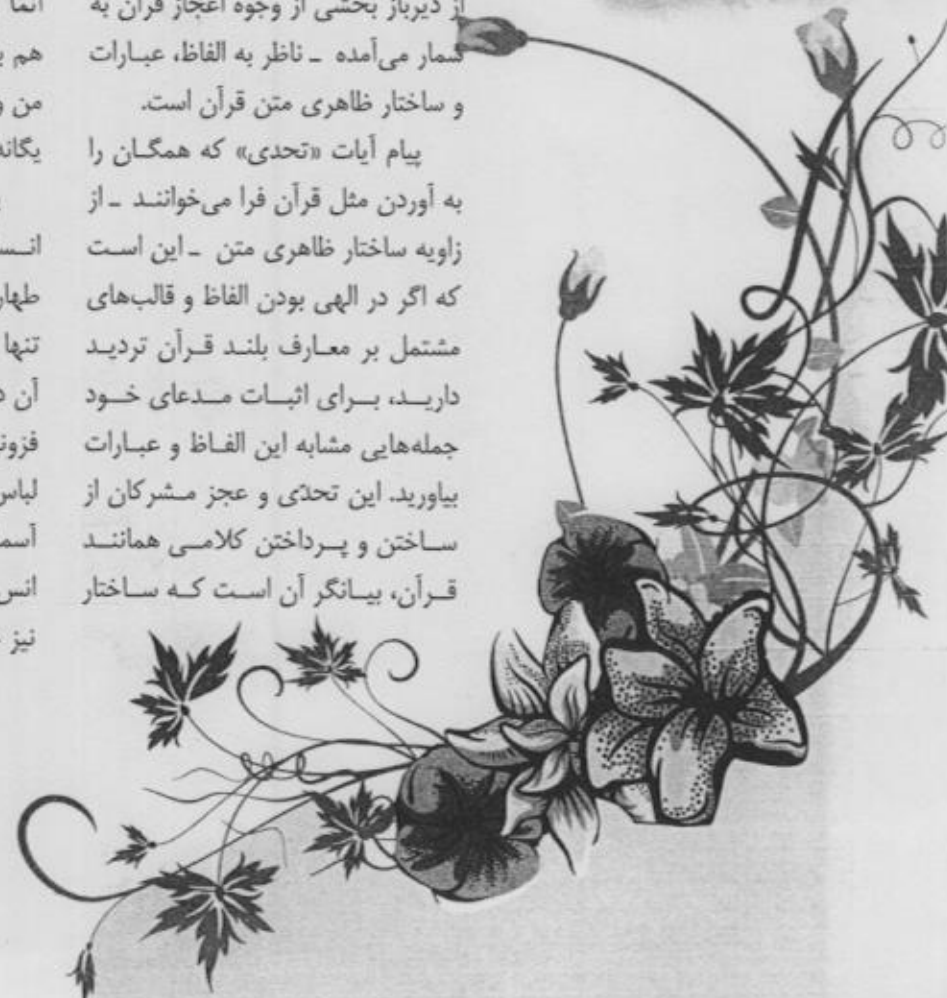 از دیرباز بخشی از وجوه اعجاز قرآن به
شمار می‌آمده ـ ناظر به الفاظ، عبارات
و ساختار ظاهری متن قرآن است.
پیام آیات «تحدی» که همگـان را
به آوردن مثل قرآن فرا می‌خواننـد ـ از
زاویه ساختار ظاهری متن ـ این اسـت
که اگر در الهی بودن الفاظ و قالب‌های
مشتمل بر معـارف بلنـد قـرآن تردیـد
داریـد، بـرای اثبـات مـدعای خـود
جمله‌هایی مشابه این الفـاظ و عبـارات
بیاورید. این تحدّی و عجز مـشرکان از
سـاختن و پـرداختن کلامـی هماننـد
قـرآن، بیـانگر آن اسـت کـه سـاختار
هم
من و
یگانه
انـسـ
طهار
تنها
آن د
فزونـ
لباس
آسمـ
انس
نیز